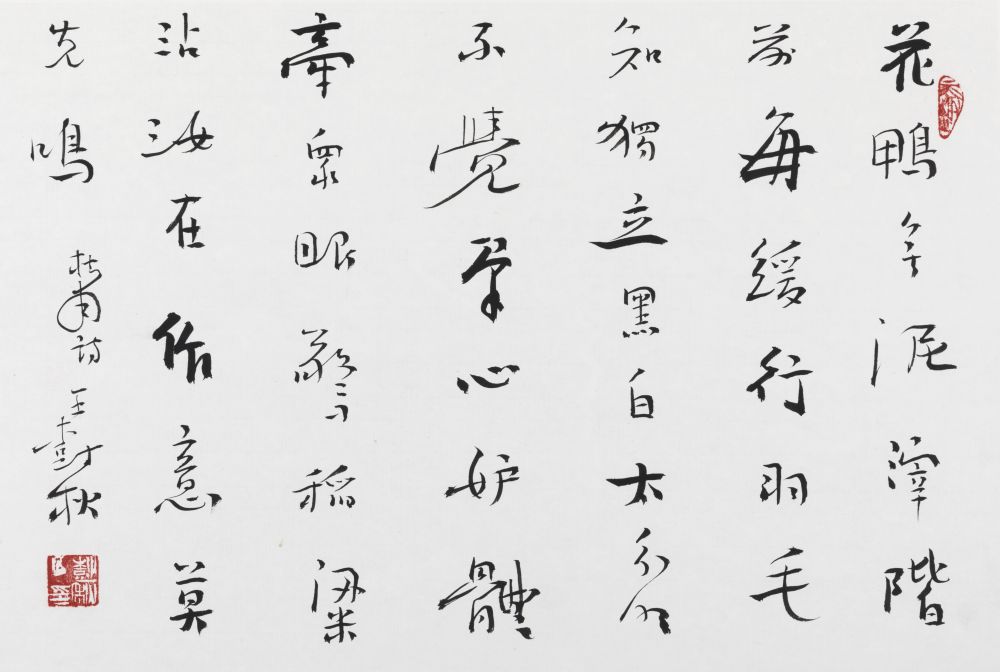 花鴨無泥滓階
前每緩行羽毛
知獨立黑白太分明
不覺羣心妒體
牽眾眼驚稻粱
沾汝在作意莫
先鳴
杜甫詩 王樹秋